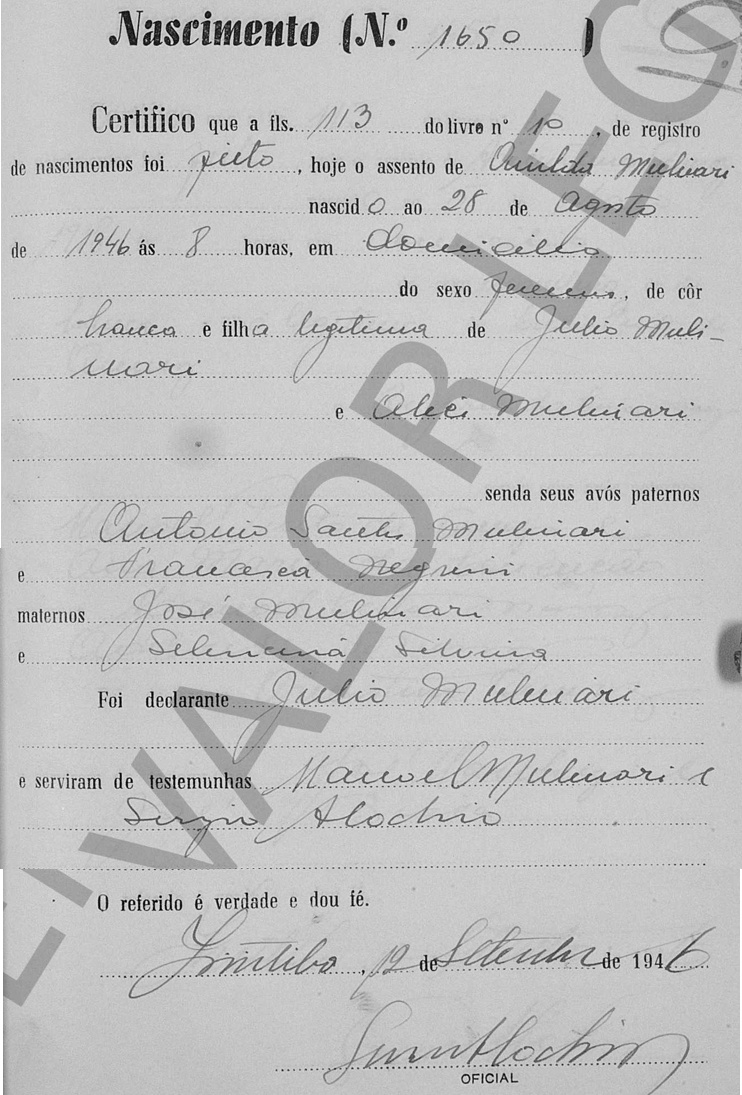 Nascimento (N.º 1650)
Certifico que a fls. 113 do livro nº 10, de registro
de nascimentos foi feito, hoje o assento de Anilda Mulinari
nascido ao 28 de Agsto
de 1946 ás 8 horas, em domicilio
do sexo femeni, de côr
branca e filha legitima de Julio Muli-
nari
e Aleci Mulinari
senda seus avós paternos
Antonio Santos Mulinari
e Francisca Negrini
maternos José Mulinari
e Silvina
Foi declarante Julio Mulinari
e serviram de testemunhas Manoel Mulinari e
Sergio Alochio
O referido é verdade e dou fé.
12 de Setembr de 1946
OFICIAL
VALOR LEG